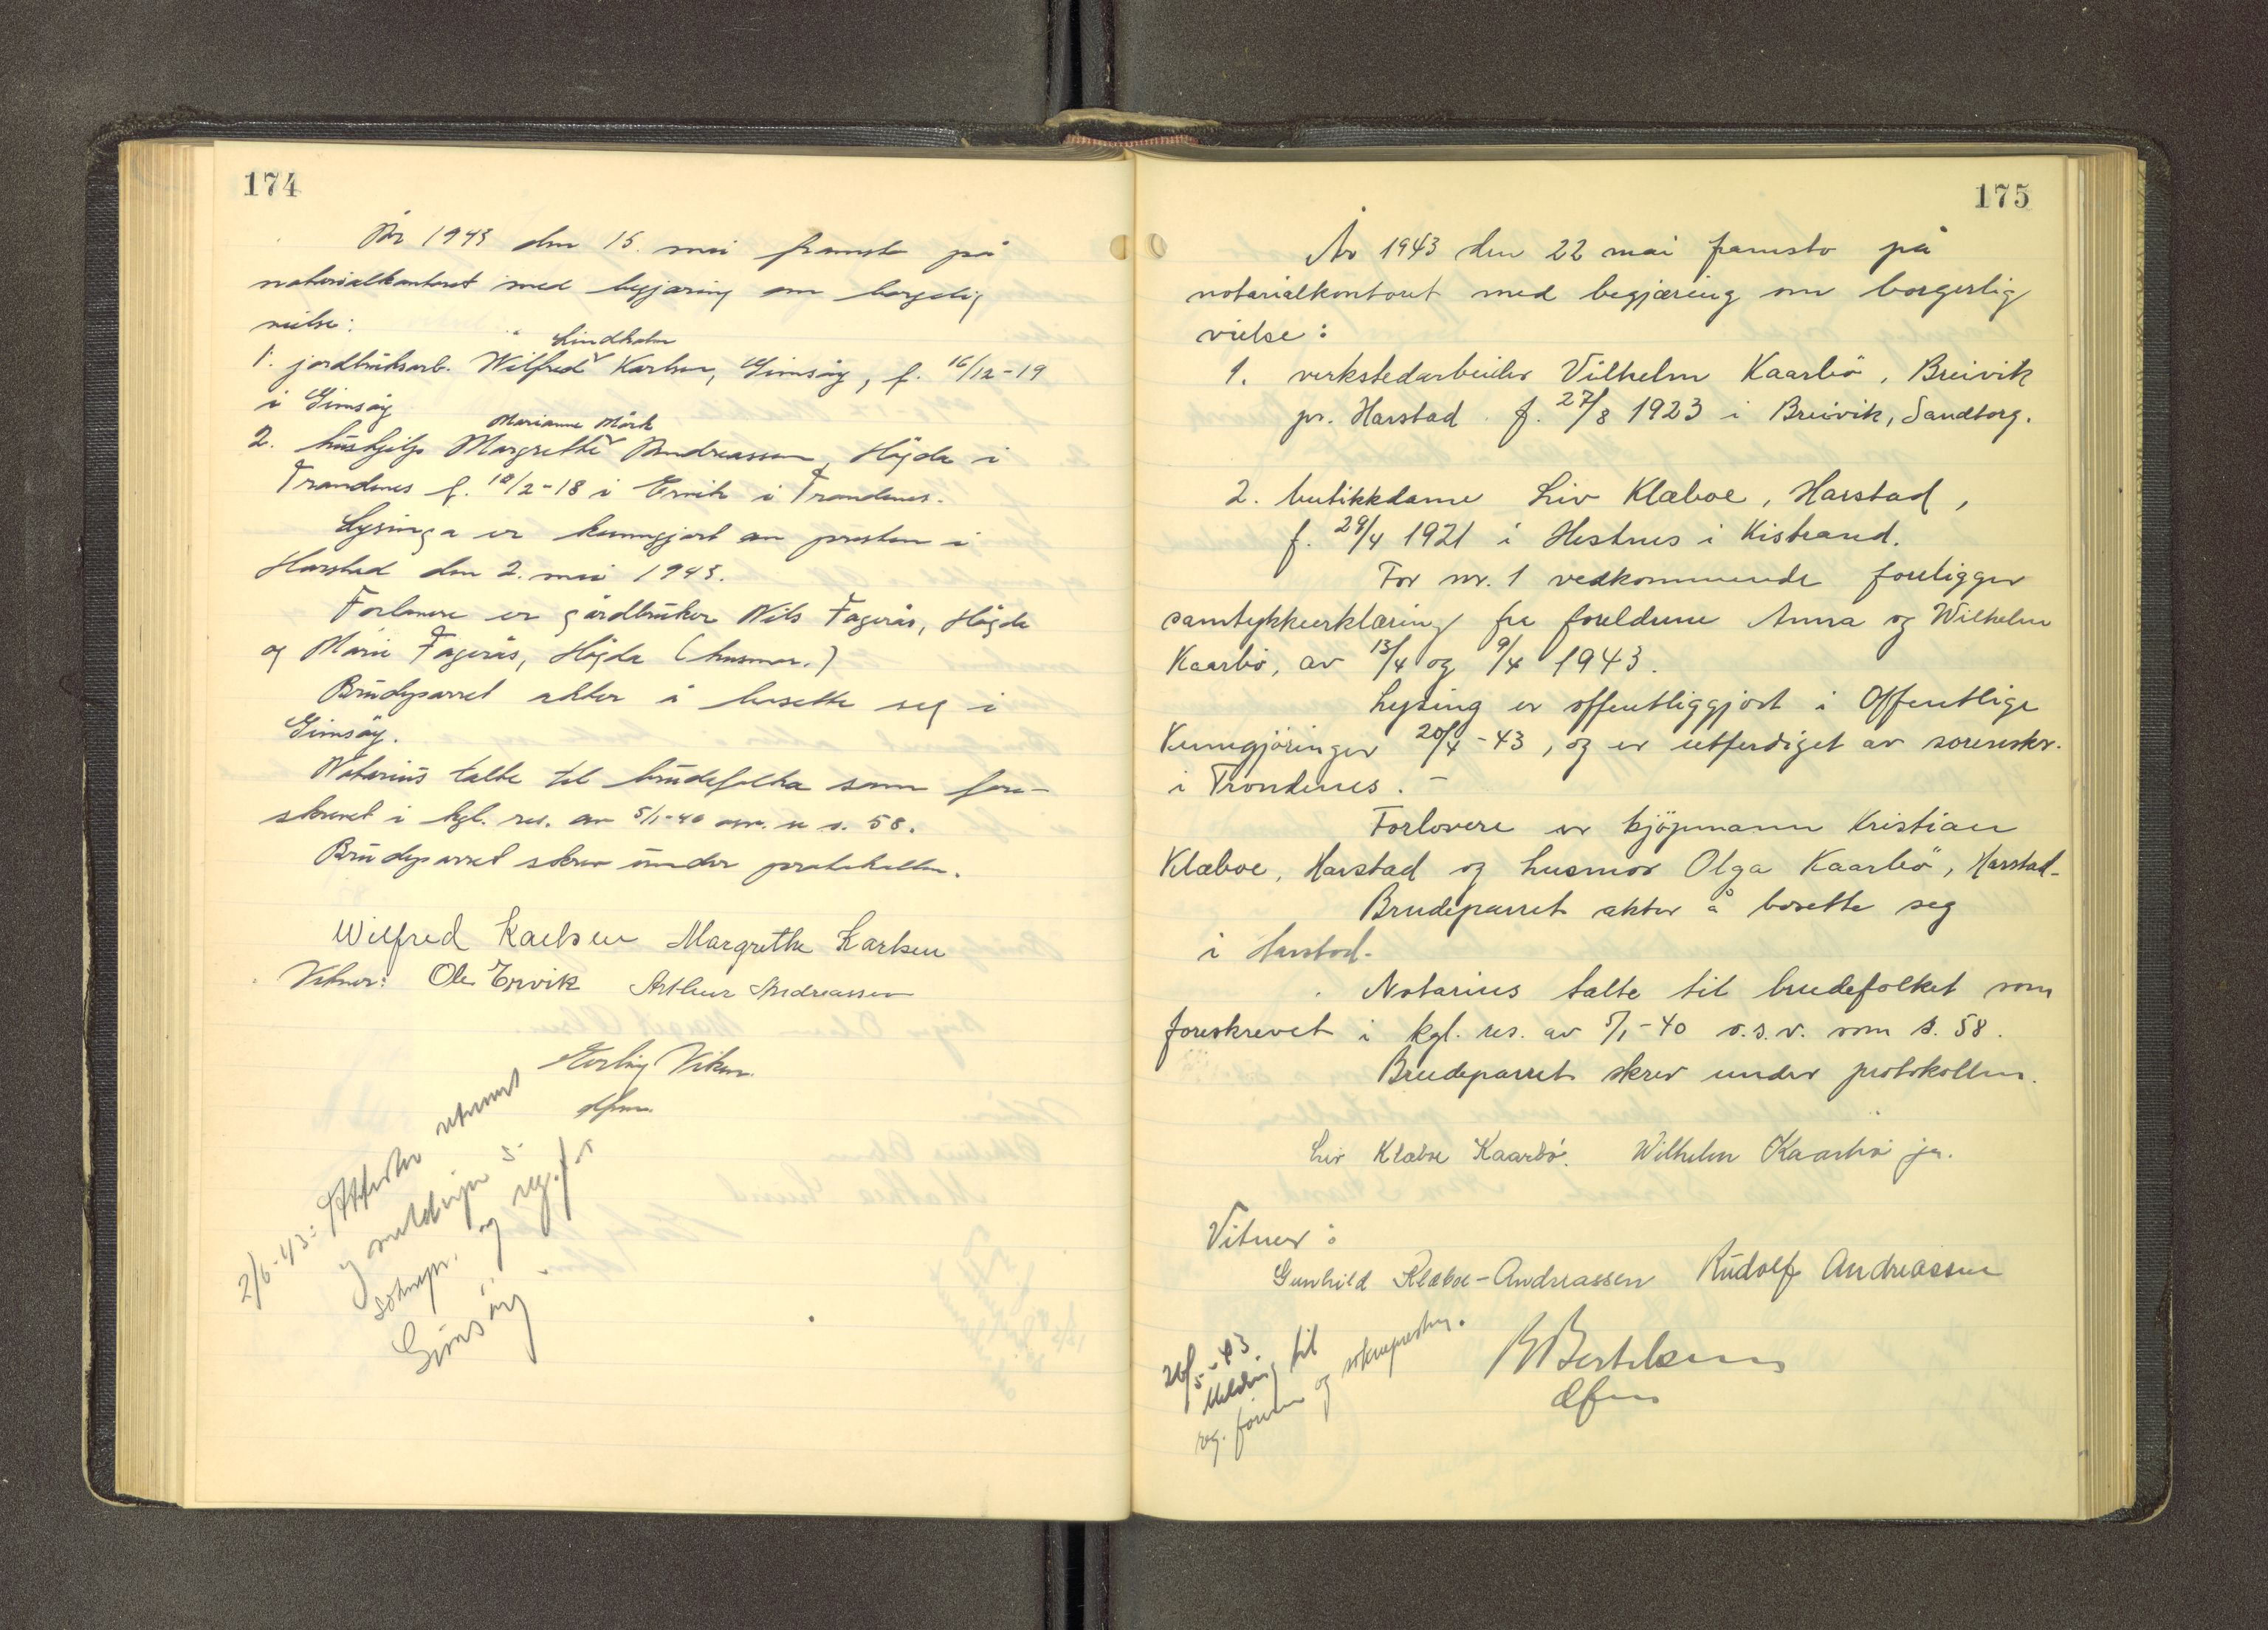 174
År 1943 den 15. mai framsto på
notarialkontoret med begjæring om borgerlig
vielse:
Lindholm
1. jordbruksarb. Wilfred Karlsen, Gimsöy, f. 16/12-19
i Gimsöy
Marianne Mörk
2. hushjelp Margrethe Andreassen, Högda i
Trondenes f. 18/2-18 i Ervik i Trondenes.
Lysinga er kunngjort av presten i
Harstad den 2. mai 1943.
Forlovere er gårdbruker Nils Fagerås, Högda
og Marie Fagerås, Högda (husmor.)
Brudeparret akter å bosette seg i
Gimsöy.
Notarius talte til brudefolka som fore-
skrevet i kgl. res. av 5/1-40 s. 58.
Brudeparret skrev under protokollen.
Wilfred Karlsen Margrethe Karlsen
Vitner: Ole Ervik Arthur Andreassen
Erling Viken
dfm.
2/6-43: Attester
og meldinger
soknepr. og reg.f.
Gimsöy
175
År 1943 den 22 mai framsto på
notarialkontoret med begjæring om borgerlig
vielse:
1. verkstedarbeider Vilhelm Kaarbö, Breivik
pr. Harstad f. 27/8 1923 i Breivik, Sandtorg.
2. butikkdame Liv Klæboe, Harstad,
f. 29/4 1921 i Hestnes i Kistrand.
For nr. 1 vedkommende foreligger
samtykkeerklæring fra foreldrene Anna og Wilhelm
Kaarbö, av 13/4 og 9/4 1943.
Lysing er offentliggjort i Offentlige
Kunngjöringer 20/4-43, og er utferdiget av sorenskr.
i Trondenes.-
Forlovere er kjöpmann Kristian
Klæboe, Harstad og husmor Olga Kaarbö, Harstad-
Brudeparret akter å bosette seg
i Harstad-
Notarius talte til brudefolket som
foreskrevet i kgl. res. av 5/1-40 o.s.v. som s. 58.
Brudeparret skrev under protokollen.
Liv Klæboe Kaarbö. Wilhelm Kaarbö jr.
Vitner:
Gunhild Klæboe-Andreassen Rudolf Andreassen
B Bertelsen
dfm
26/5-43
Melding til
reg. föreren og soknepresten.